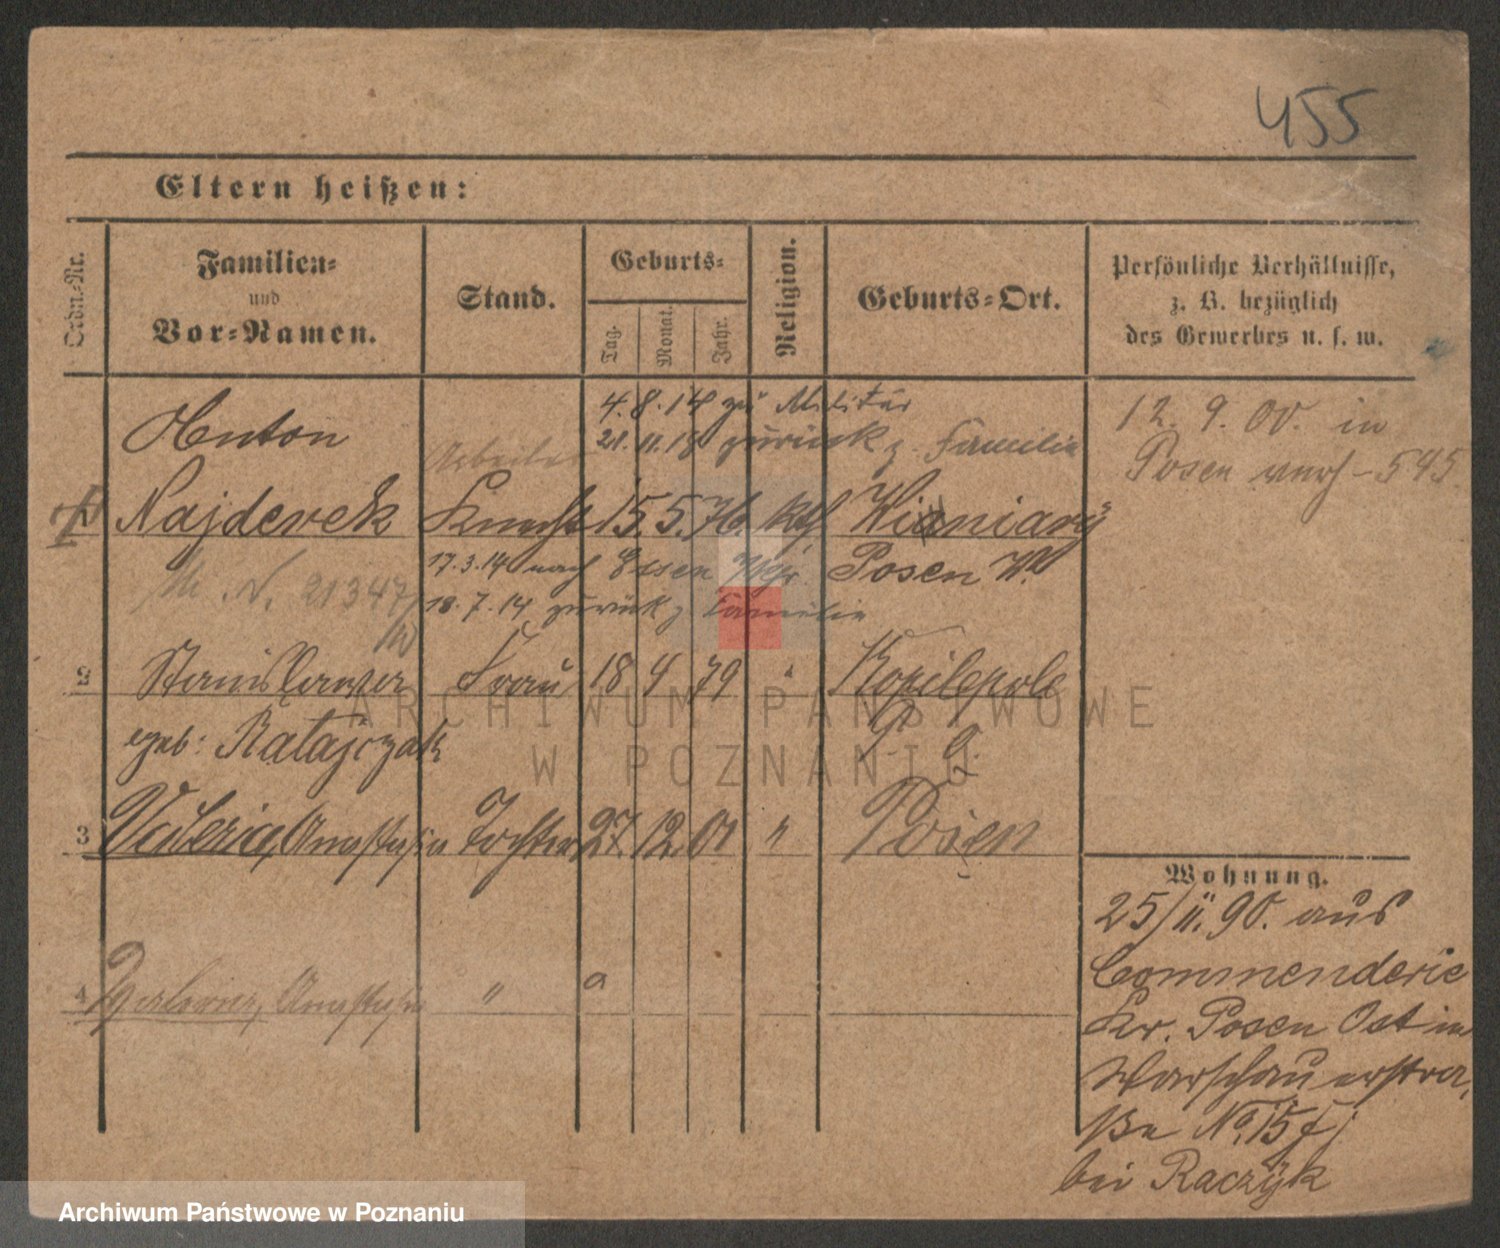 455
Eltern heißen:
Ordn.-Nr.
Familien-
und
Vor-Namen.
Stand.
Geburts-
Tag.
Monat.
Jahr.
Religion.
Geburts-Ort.
Persönliche Verhältnisse,
z. B. bezüglich
des Gewerbes u. s. w.
4. 8. 14 zu Militär
21. 11. 18 zurück z. Familie
12. 9. 00. in
Posen verh - 545
Anton
Arbeiter
Najderek Knecht 15. 5. 76. kth Winiary
17. 3. 14 nach Essen Posen W.
N. 21347
18. 7. 14 zurück z. Familie
2 Stanisława Frau 18 4 79 " Kopilepole
geb: Ratajczak
3 Valeria, Anastasia Tochter 27. 12. 01 " Posen
4 Walerie, Anastasia "
Wohnung.
25/11. 90. aus
Commenderie
Kr. Posen Ost in
Warschauerstra,
ße No. 15 f
bei Raczÿk
ARCHIWUM PAŃSTWOWE
W POZNANIU
Archiwum Państwowe w Poznaniu